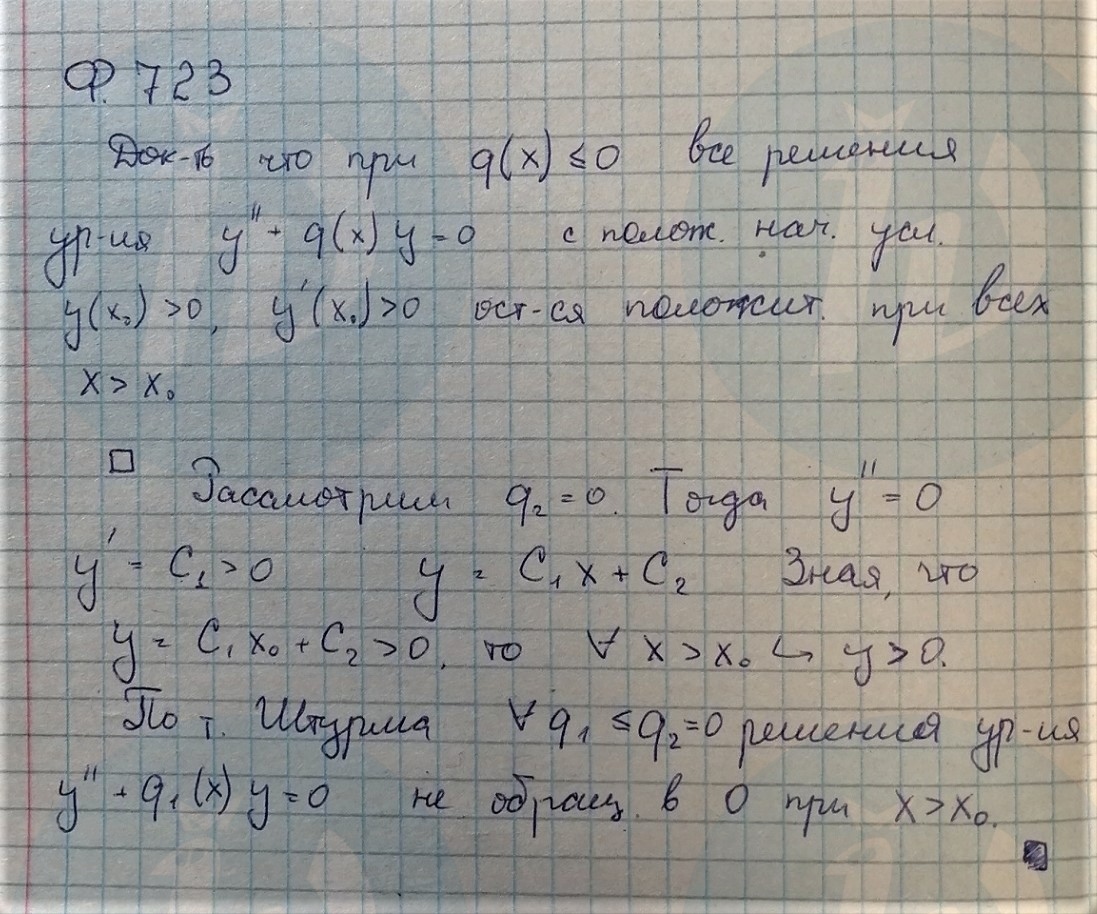 Ф. 723
Док-ть что при q(x) ≤ 0 все решения
ур-ия y'' + q(x) y = 0 с полож. нач. усл.
y(x₀) > 0, y'(x₀) > 0 ост-ся положит. при всех
x > x₀
□ Рассмотрим q₂ = 0. Тогда y'' = 0
y' = C₁ > 0 y = C₁ x + C₂ Зная, что
y = C₁ x₀ + C₂ > 0, то ∀ x > x₀ ↪ y > 0.
По т. Штурма ∀ q₁ ≤ q₂ = 0 решения ур-ия
y'' + q₁(x) y = 0 не обращ. в 0 при x > x₀.